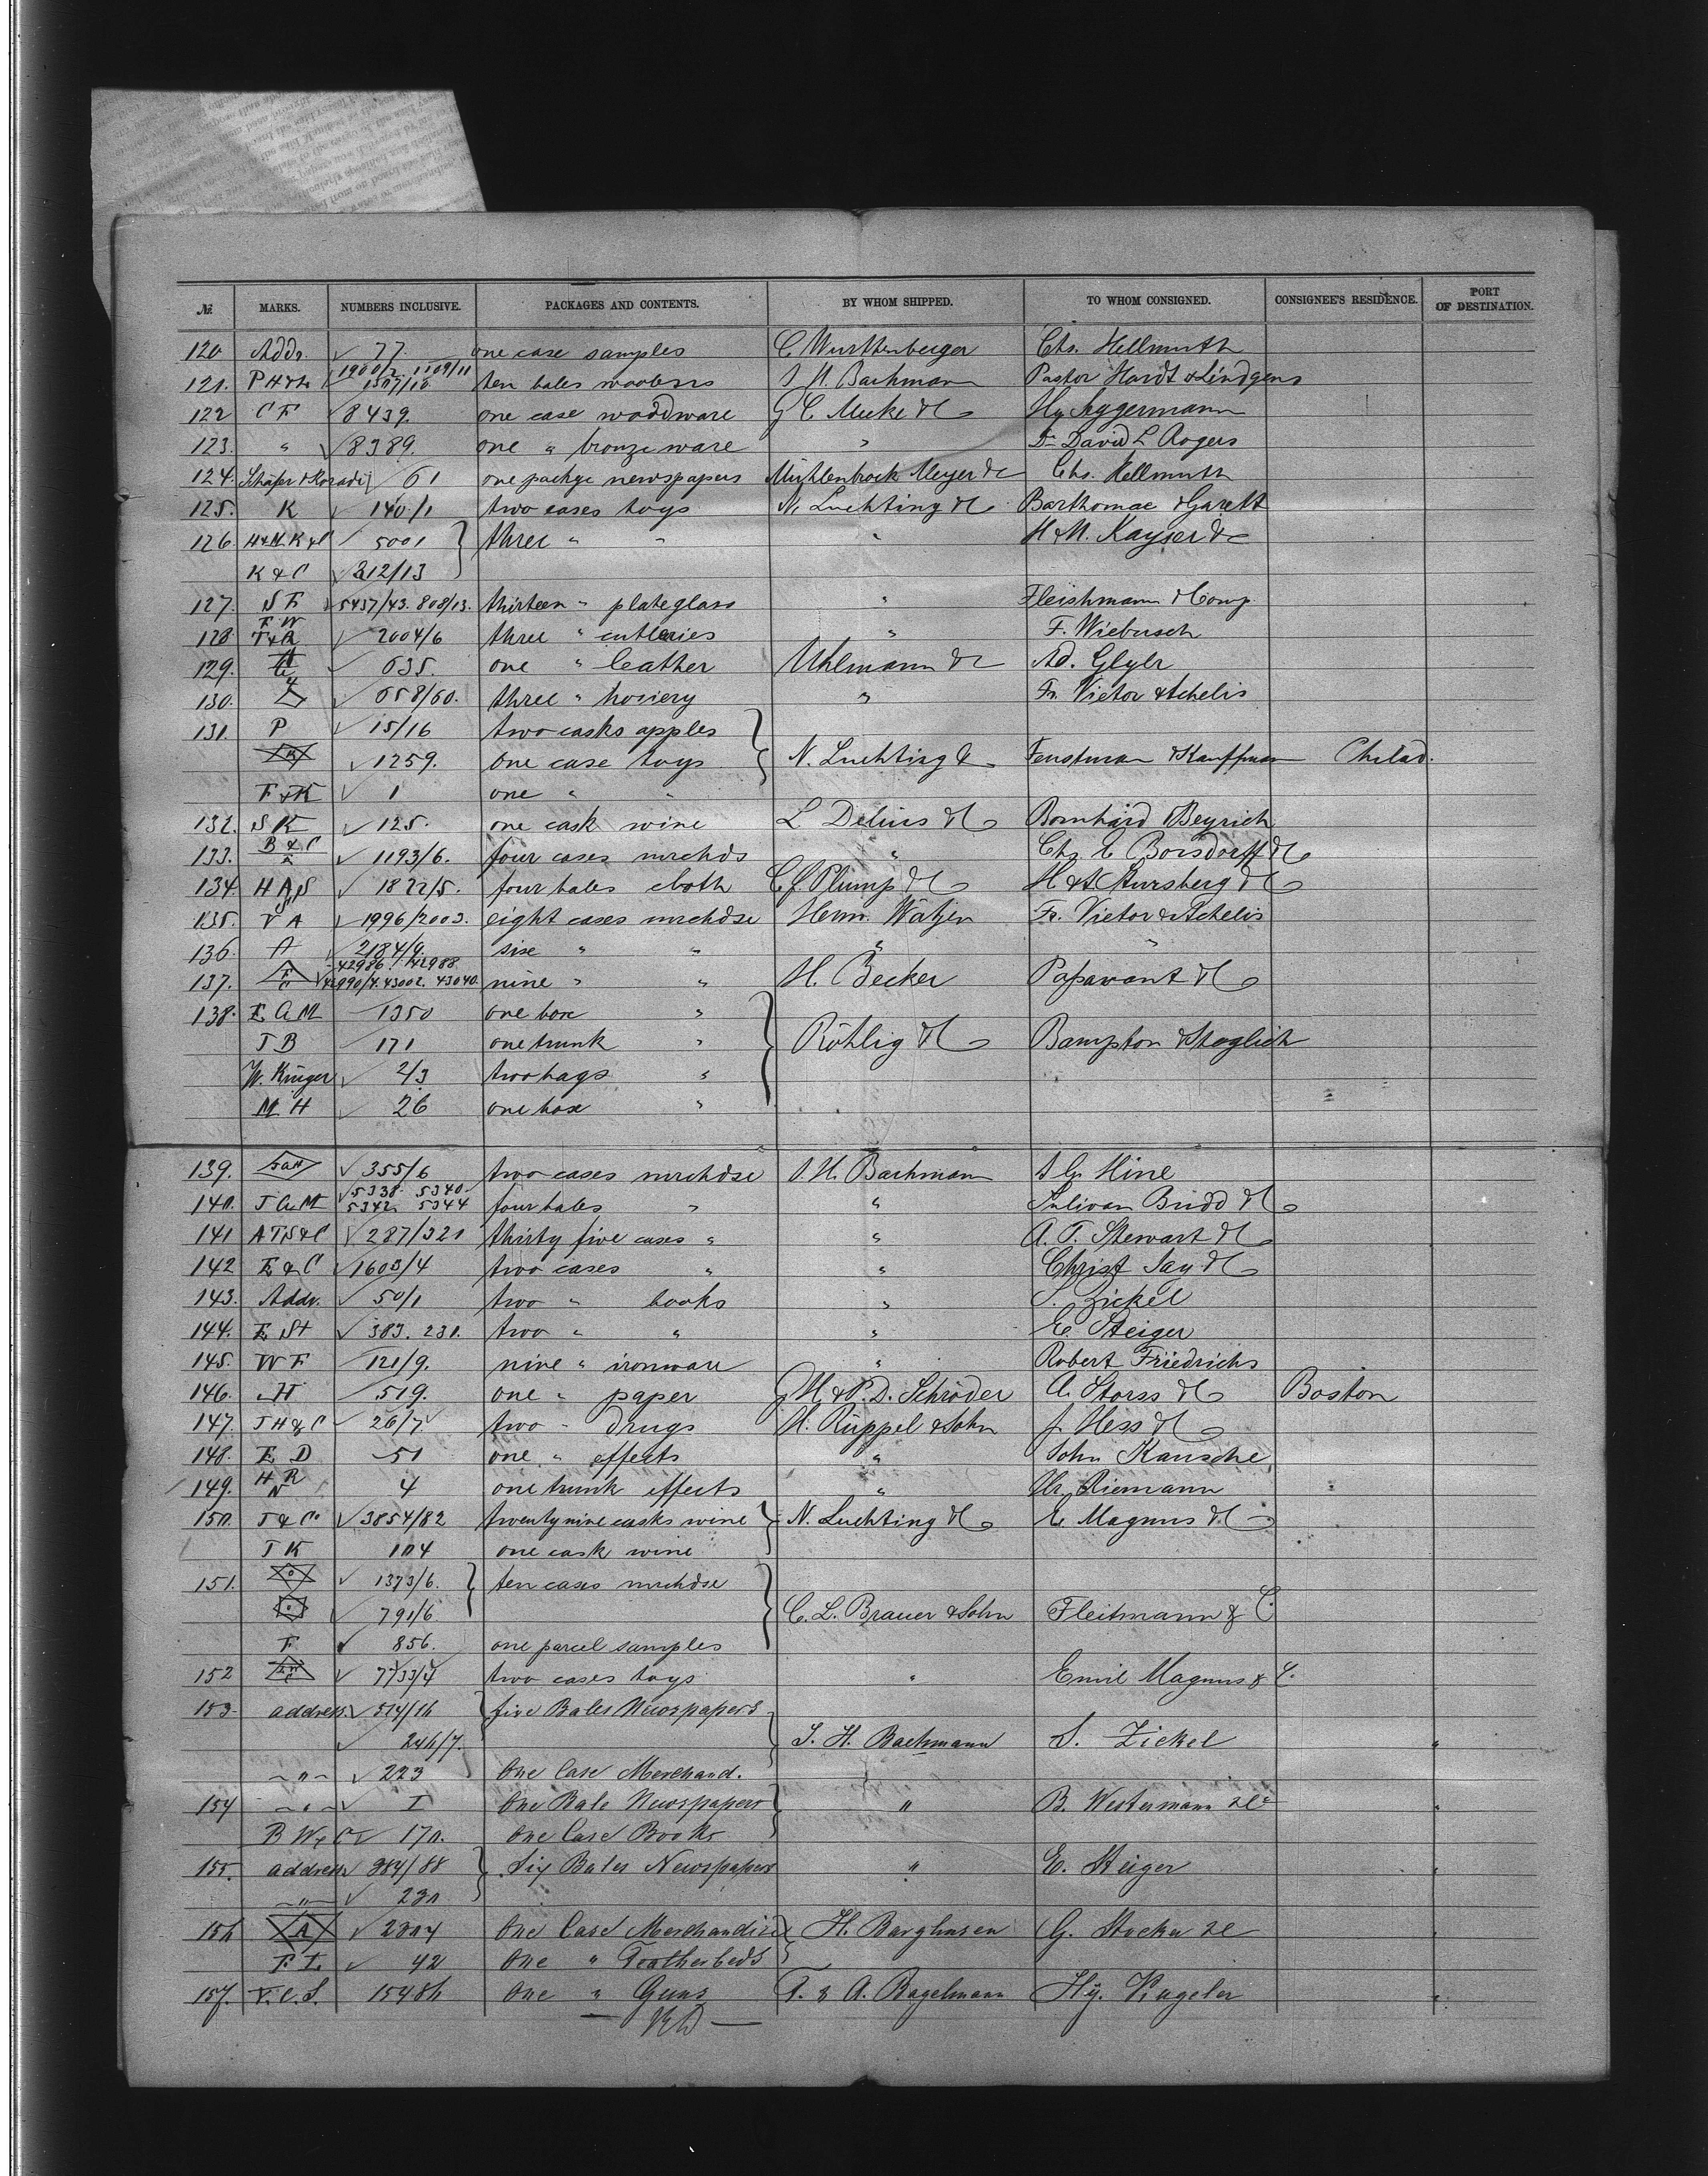 № MARKS. NUMBERS INCLUSIVE. PACKAGES AND CONTENTS. BY WHOM SHIPPED. TO WHOM CONSIGNED. CONSIGNEE'S RESIDENCE. PORT OF DESTINATION.
120 Addr. ✓ 77. one case samples C Wurthenberger Chs. Hellmuth
121. 1900/2. 1509/11 1507/10 ten bales woolens S H. Bachmann Pastor Hardt & Lindgens
122 C F ✓ 8439. one case woodware G C Mecke & C Hy
123. " ✓ 8389. one " bronzeware " Dr David L Rogers
124. Schäfer & Koradi ✓ 61 one packge newspapers Mühlenbrock Meyer & C Chs. Hellmuth
125. K ✓ 140/1 two cases toys N. Luchting & C Barthomae & Garett
126. H & M. K & C ✓ 5001 three " " " H & M. Kayser & C
K & C ✓ 212/13
127. S F ✓ 5437/43. 808/13. thirteen " plateglass " Fleishmann & Comp
128. F W T & R ✓ 2004/6 three " cutleries " F. Wiebusch
129. ✓ 635. one " leather Uhlmann & C Ad.
130. ✓ 658/60. three " hosiery " Fr. Vietor & Achelis
131. P ✓ 15/16 two casks apples
✓ 1259. one case toys N. Luchting & C & Kauffman Philad.
F & K ✓ 1 one " "
132. S K ✓ 125. one cask wine L. Delius & C Bernhard Beyrich
133. B & C ✓ 1193/6. four cases mrchds " Chs. E Borsdorff & C
134. H A S ✓ 1822/5. four bales cloth C. f. Plump & C H & A Stursberg & C
135. V A ✓ 1996/2003. eight cases mrchdse Herm. Wätjen Fr. Vietor & Achelis
136. A ✓ 2184/9. sixe " " " "
137. F C 42986. 42988 ✓ 42990/4. 43002. 43040. nine " " H. Becker Papavant & C
138. E. A M 1350 one boxe "
T B 171 one trunk " Röhlig & C Bampton & Steglich
W. Krüger ✓ 2/3 two bags "
M. H ✓ 26 one boxe "
139. ✓ 355/6 two cases mrchdse S. H. Bachmann S G. Hine
140. T A M ✓ 5338. 5340. 5342. 5344 four bales " " Sulivan Budd & C
141 A T S & C ✓ 287/321 thirty five cases " " A. T. Stewart & C
142 E & C ✓ 1603/4 two cases " " Christ Jay & C
143. Addr. ✓ 50/1 two " books " S. Zickel
144. E St ✓ 383. 231. two " " " E. Steiger
145. W F 121/9. nine " ironware " Robert Friedrichs
146. H 519. one " paper G H. & P. D. Schröder A. Storss & C Boston
147. J H & C ✓ 26/7 two " drugs H. Rüppel & Sohn J. Hess & C
148. E D 51 one " effects " John Kausche
149. H R N 4 one trunk effects " Hr. Riemann
150. T & Co ✓ 3854/82 twentynine casks wine N. Luchting & C E. Magnus & C
T K 104 one cask wine
151. ✓ 1373/6. ten cases mrchdse
✓ 791/6 C. L. Brauer & Sohn Fleitmann & C.
F. ✓ 856. one parcel samples
152 ✓ 7733/4 two cases toys " Emil Magnus & C.
153. address. ✓ 514/16 five Bales Newspapers
✓ 246/7. S. H. Bachmann S. Zickel "
" ✓ 223 One Case Merchand.
154 " ✓ I One Bale Newspapers " B. Westermann & Co "
B W & C ✓ 170. One Case Books
155. address ✓ 384/88 Six Bales Newspapers " E. Steiger "
" ✓ 230
156 A ✓ 2304 One Case Merchandize H. Barghusen G. & C "
F. I. ✓ 42 One " Featherbeds
157. V. C. S. 15486 One " Guns T. & A. Bagelmann Hy. "